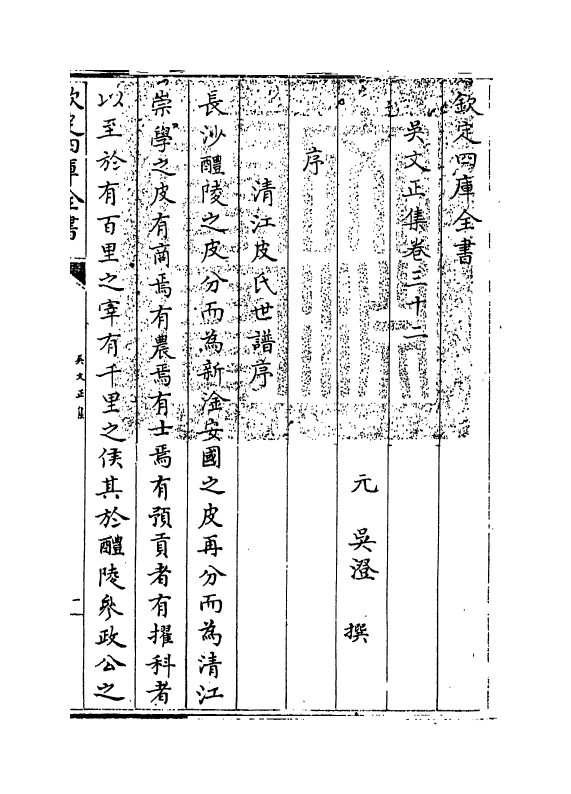 欽定四庫全書
吳文正集卷三十二
元 吳澄 撰
序
清江皮氏世譜序
長沙醴陵之皮分而為新淦安國之皮再分而為清江
崇學之皮有商焉有農焉有士焉有預貢者有擢科者
以至於有百里之宰有千里之侯其於醴陵參政公之
欽定四庫全書
吳文正集